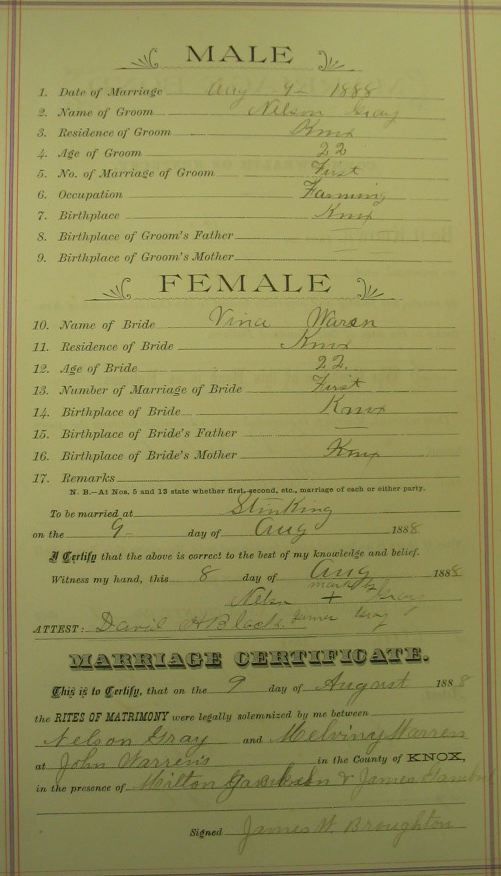 MALE
1. Date of Marriage Aug 9 1888
2. Name of Groom Nelson Gray
3. Residence of Groom Knox
4. Age of Groom 22
5. No. of Marriage of Groom First
6. Occupation Farming
7. Birthplace Knox
8. Birthplace of Groom's Father
9. Birthplace of Groom's Mother
FEMALE
10. Name of Bride Vina Waren
11. Residence of Bride Knox
12. Age of Bride 22.
13. Number of Marriage of Bride First
14. Birthplace of Bride Knox
15. Birthplace of Bride's Father
16. Birthplace of Bride's Mother Knox
17. Remarks
N. B.—At Nos. 5 and 13 state whether first, second, etc., marriage of each or either party.
To be married at Stinking
on the 9 day of Aug 1888
I Certify that the above is correct to the best of my knowledge and belief.
Witness my hand, this 8 day of Aug 1888
Nelson + Gray
ATTEST: David H Black. James Gray
MARRIAGE CERTIFICATE.
This is to Certify, that on the 9 day of August 1888
the RITES OF MATRIMONY were legally solemnized by me between
Nelson Gray and Melviny Warren
at John Warren's in the County of KNOX,
in the presence of Milton & James
Signed James W. Broughton